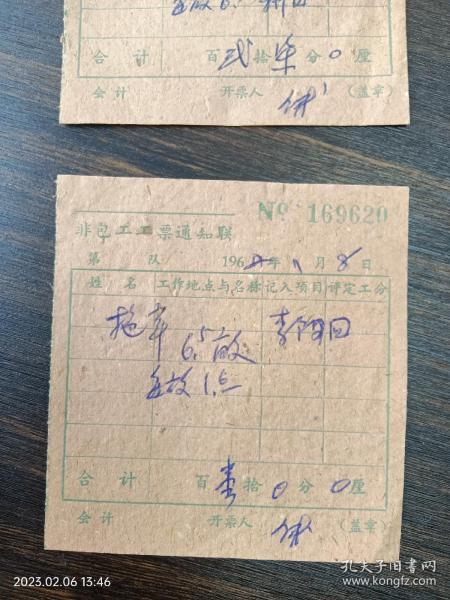 合 计 百 弍 拾 柒 分 0 厘
会 计 开票人 (盖章)
№ 169620
非包工工票通知联
第 队 196 年 11 月 8 日
姓 名 工作地点与名称 记入项目 评定工分
拖车 6.5亩
每亩 1.点
合 计 百 壹 拾 0 分 0 厘
会 计 开票人 (盖章)
2023.02.06 13:46
孔夫子旧书网
book.kongfz.com